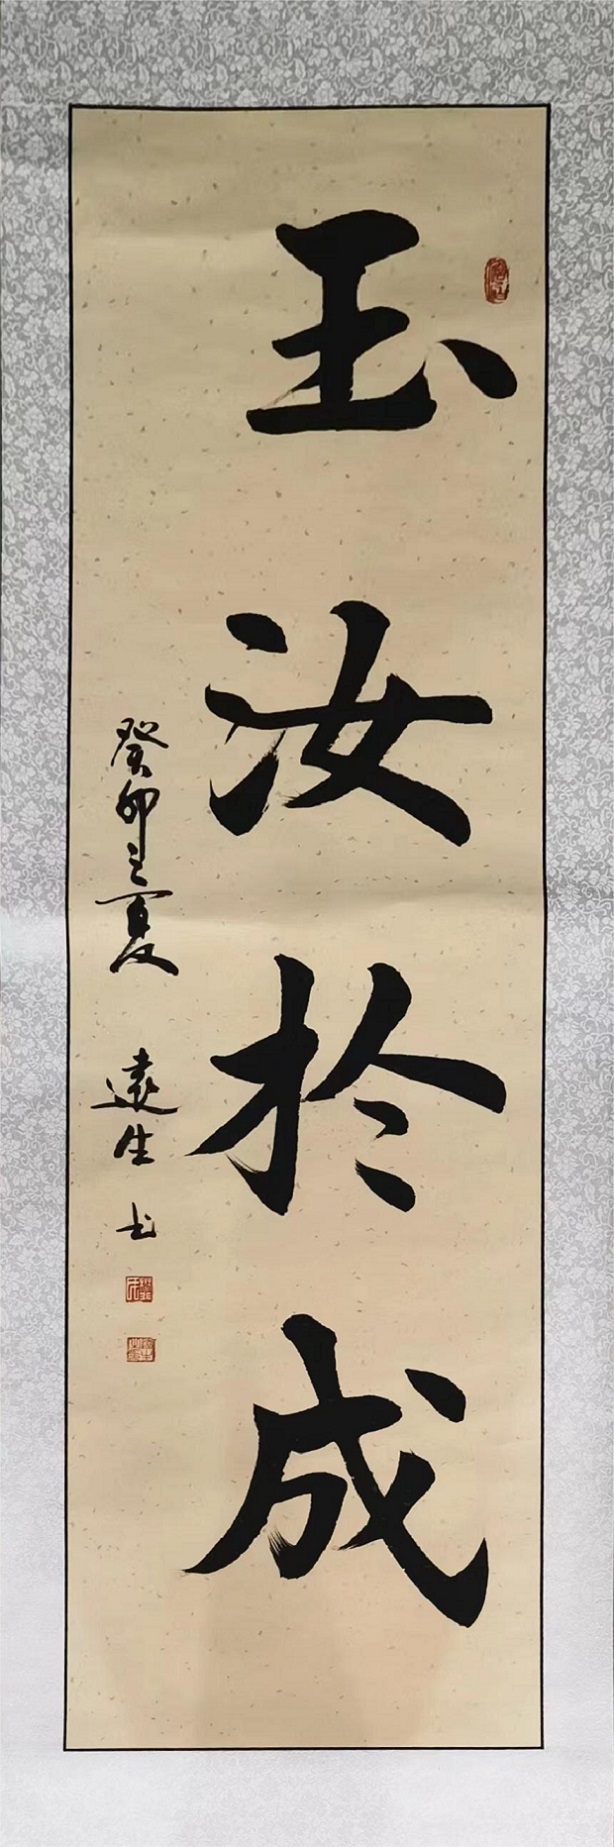 玉汝於成
癸卯之夏 遠生書